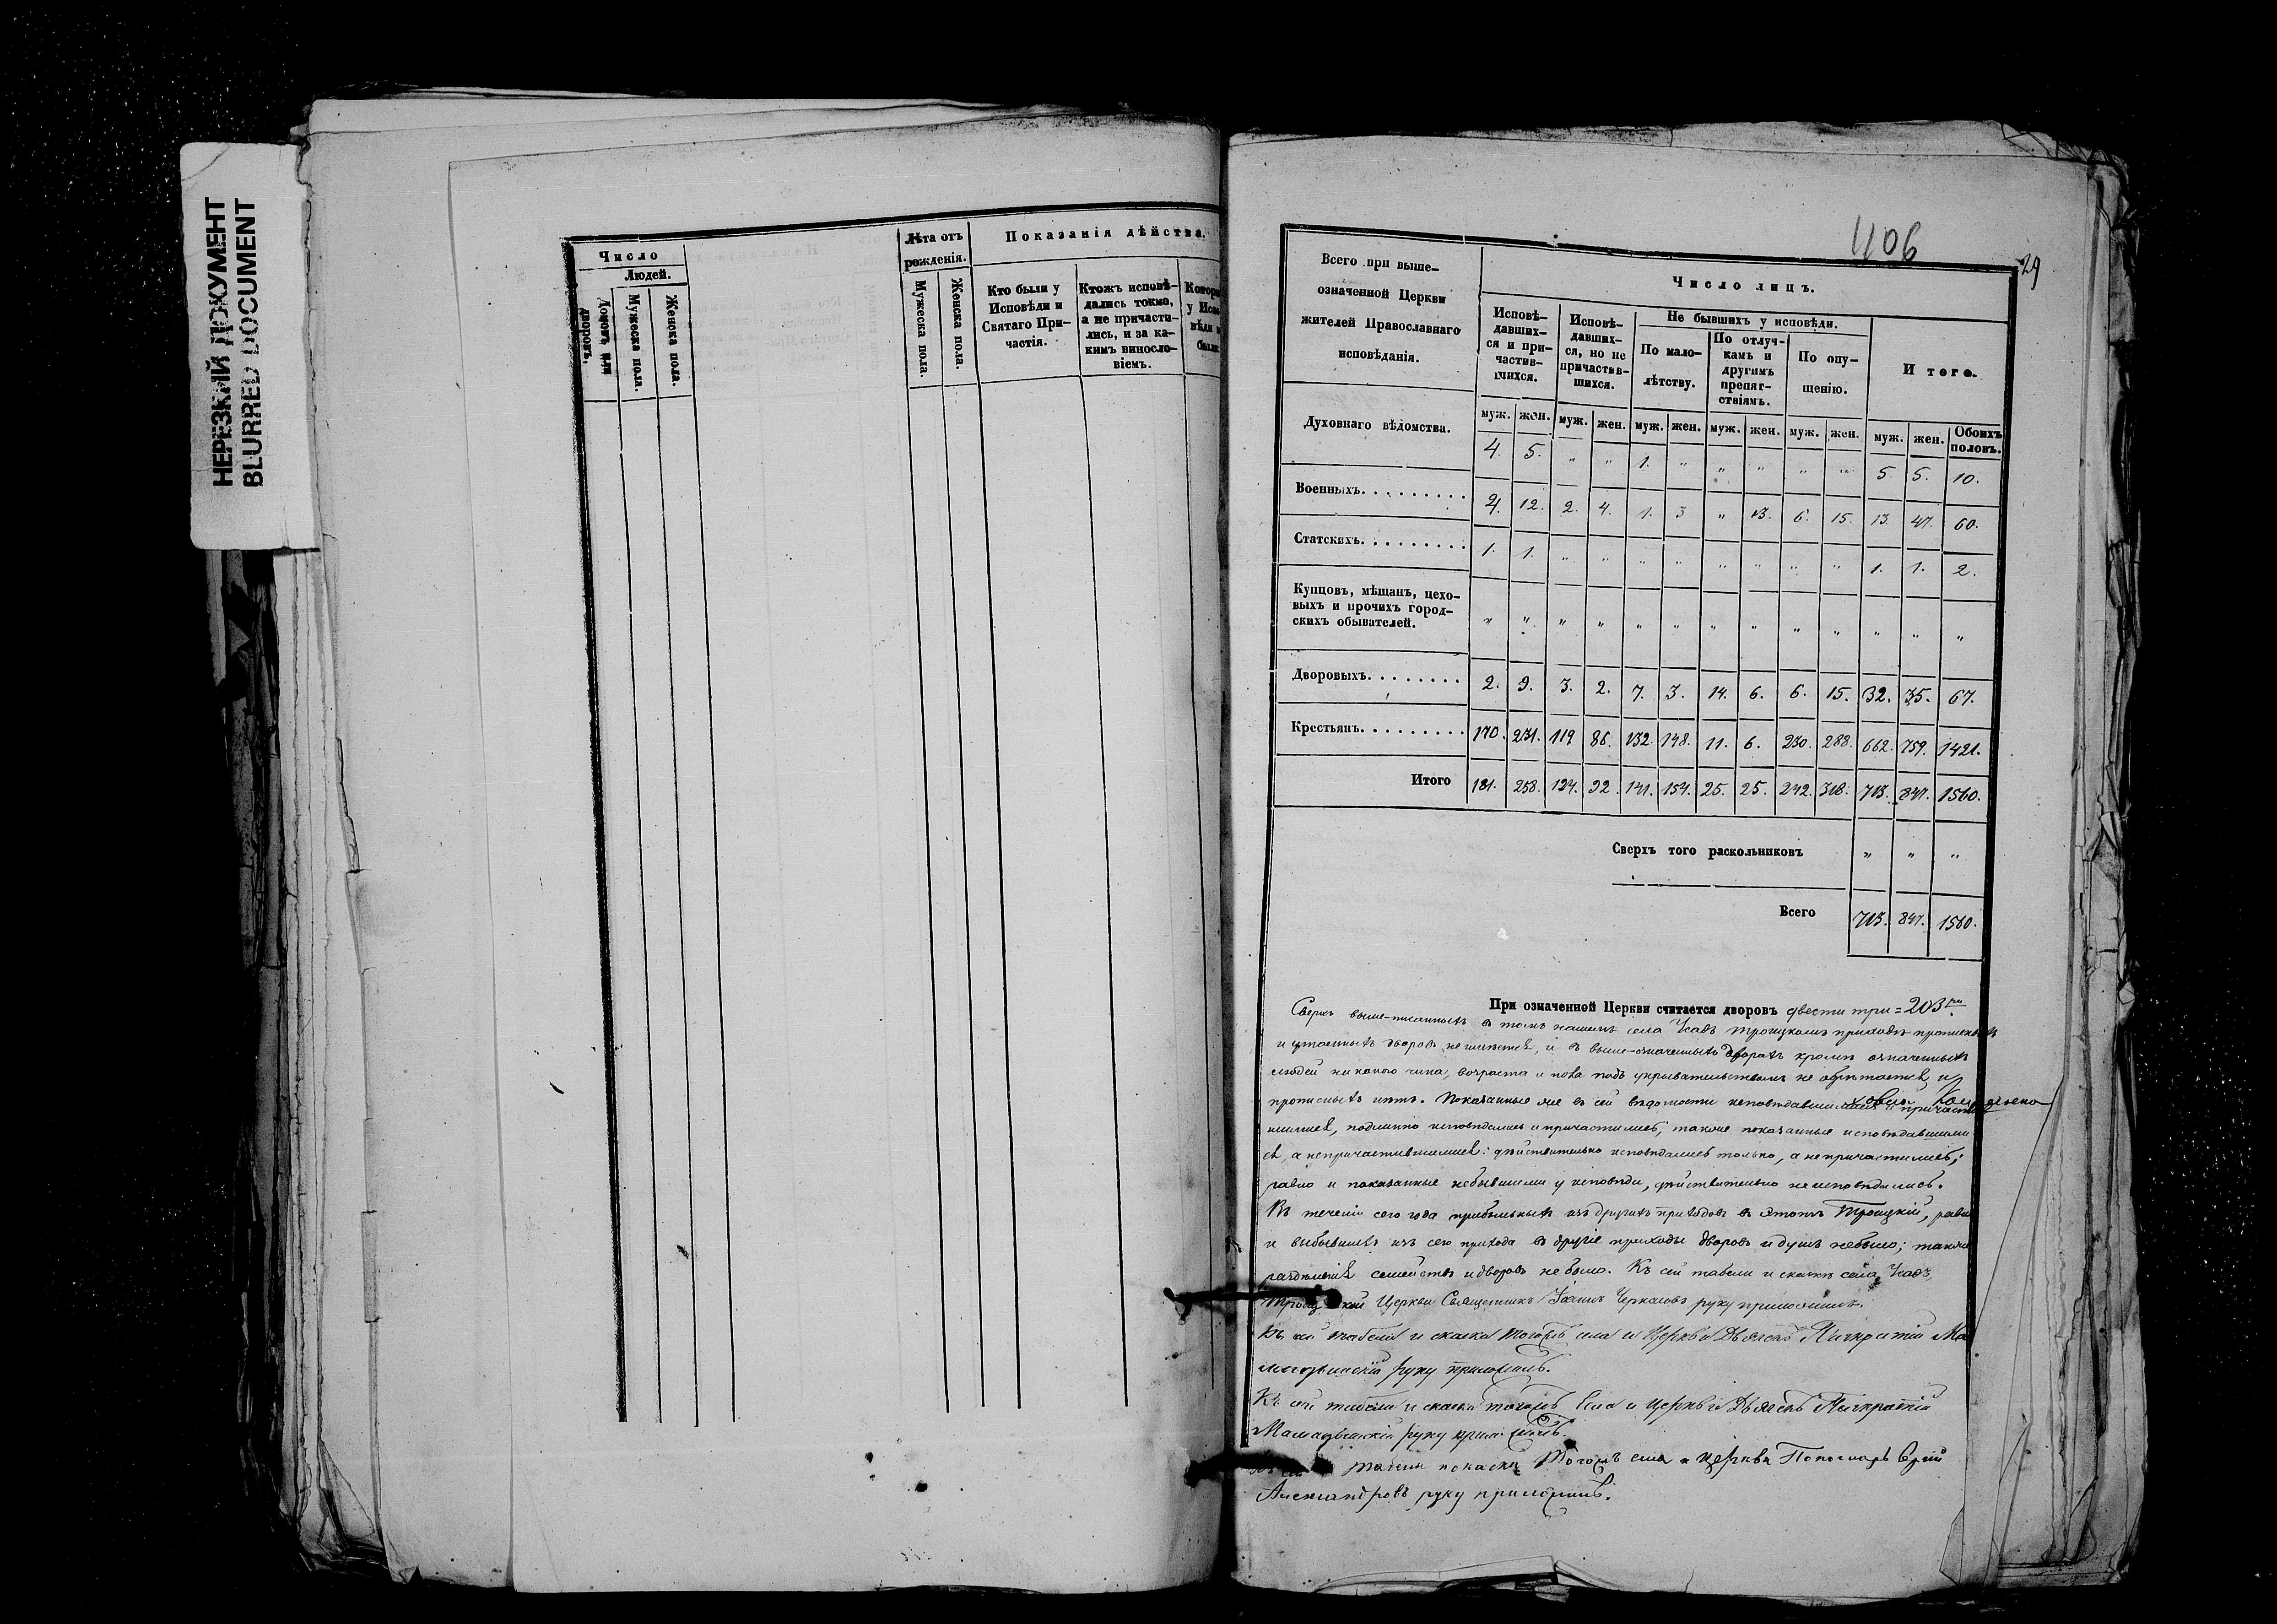 НЕРЕЗКИЙ ДОКУМЕНТ
BLURRED DOCUMENT
Число
Людей.
Домовъ или дворовъ.
Мужеска пола.
Женска пола.
Лѣта отъ рожденія.
Мужеска пола.
Женска пола.
Показанія дѣйства.
Кто были у Исповѣди и Святаго Причастія.
Ктожъ исповѣдались токмо, а не причастились, и за какимъ винословіемъ.
406
29
Всего при вышеозначенной Церкви жителей Православнаго исповѣданія.
Число лицъ.
Исповѣдавшихся и причастившихся.
Исповѣдавшихся, но не причастившихся.
Не бывшихъ у исповѣди.
По малолѣтству.
По отлучкамъ и другимъ препятствіямъ.
По опущенію.
Итого.
муж. жен. муж. жен. муж. жен. муж. жен. муж. жен. муж. жен. Обоихъ половъ.
Духовнаго вѣдомства. 4. 5. " " 1. " " " " " 5. 5. 10.
Военныхъ. 4. 12. 2. 4. 1. 3 " 13. 6. 15. 13. 47. 60.
Статскихъ. 1. 1. " " " " " " " " 1. 1. 2.
Купцовъ, мѣщанъ, цеховыхъ и прочихъ городскихъ обывателей. " " " " " " " " " " " " "
Дворовыхъ. 2. 9. 3. 2. 7. 3. 14. 6. 6. 15. 32. 35. 67.
Крестьянъ. 170. 231. 119 86. 132. 148. 11. 6. 230. 288. 662. 759. 1421.
Итого 181. 258. 124. 92. 141. 154. 25. 25. 242. 318. 713. 847. 1560.
Сверхъ того раскольниковъ " " "
Всего 713. 847. 1560.
При означенной Церкви считается дворовъ двести три = 203
Сверхъ выше-писанныхъ въ томъ нашемъ села Усадъ Троицкомъ приходѣ прописныхъ
и утаенныхъ дворовъ не имѣется, и въ выше-означенныхъ дворахъ кромѣ означенныхъ
людей никакого чина, возраста и пола подъ укрывательствомъ не обрѣтается и
прописныхъ нѣтъ. Показанные же въ сей вѣдомости исповѣдавшимися и причастив
шимися, подлинно исповѣдались и причастились; также показанные исповѣдавшими
ся, а непричастившимися: дѣйствительно исповѣдались только, а не причастились;
равно и показанные небывшими у исповѣди, дѣйствительно неисповѣдались.
Въ теченіи сего года прибывшихъ изъ другихъ приходовъ въ этотъ Троицкій, равно
и выбывшихъ изъ сего прихода въ другіе приходы дворовъ и душъ небыло; также
раздѣленія семействъ и дворовъ не было. Къ сей табели и сказкѣ села Усадъ,
Троицкой Церкви Священникъ Іоаннъ Черкасовъ руку приложилъ.
Къ сей табели и сказки тогожъ села и Церкви Дьяконъ Панкратій Ма
мадышскій руку приложилъ.
Къ сей табели и сказки тогожъ села и Церкви Дьяконъ Панкратій
Мамадышскій руку приложилъ.
табели и сказки тогожъ села и Церкви Пономарь
Александровъ руку приложилъ.